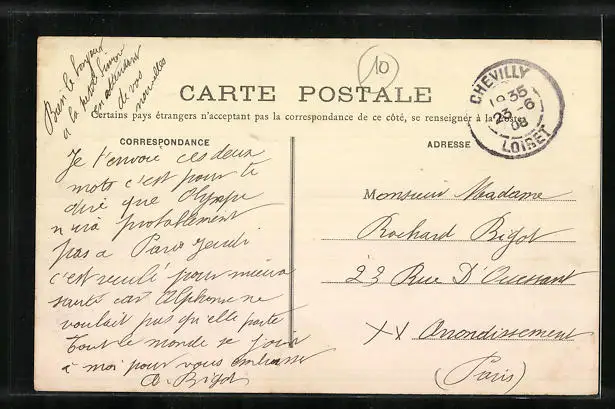 Bien le bonjour
a la petite
en attendant
de vos
nouvelles
10
CARTE POSTALE
Certains pays étrangers n'acceptant pas la correspondance de ce côté, se renseigner à la Poste
CHEVILLY
23 -6
08
LOIRET
CORRESPONDANCE
Je t'envoie ces deux
mots c'est pour te
dire que Olympe
n'ira probablement
pas a Paris Jeudi
c'est reculé pour mieux
sauté car Alphonse ne
voulait pas qu'elle parte
Tout le monde se
à moi pour vous embrasser
A. Bigot
ADRESSE
Monsieur Madame
Rochard Bigot
23 Rue D'Ouessant
XX Arrondissement
(Paris)